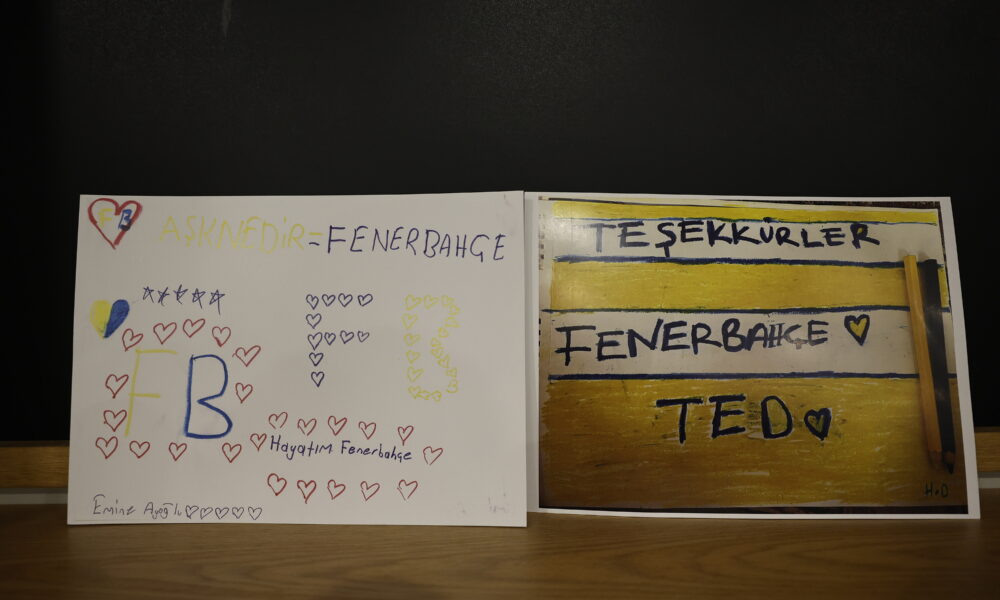 FB
AŞK NEDİR = FENERBAHÇE
FB
FB
Hayatım Fenerbahçe
Emine
TEŞEKKÜRLER
FENERBAHÇE
TED
H.D